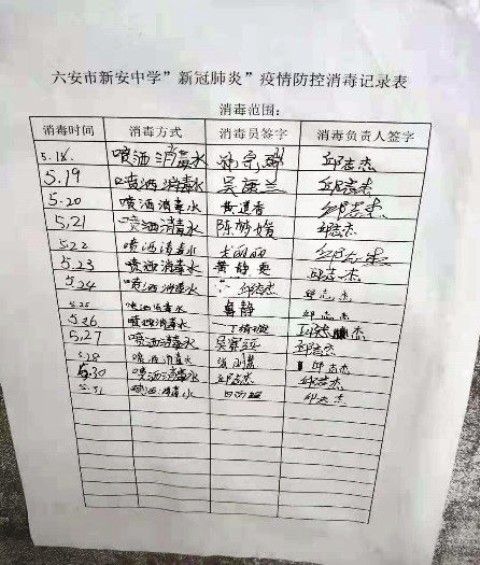 六安市新安中学”新冠肺炎”疫情防控消毒记录表
消毒范围：
消毒时间 消毒方式 消毒员签字 消毒负责人签字
5.18. 喷洒消毒水 邱志杰
5.19 喷洒消毒水 吴康兰 邱志杰
5.20 喷洒消毒水 黄道香 邱志杰
5.21 喷洒消毒水 陈娇媛 邱志杰
5.22 喷洒消毒水 邱志杰
5.23 喷洒消毒水 黄静 邱志杰
5.24 喷洒消毒水 邱志杰 邱志杰
5.25 喷洒消毒水 鲁静 邱志杰
5.26 喷洒消毒水 邱志杰
5.27 喷洒消毒水 邱志杰
5.28 喷洒消毒水 邱志杰
5.30 喷洒消毒水 邱志杰 邱志杰
5.31 喷洒消毒水 邱志杰